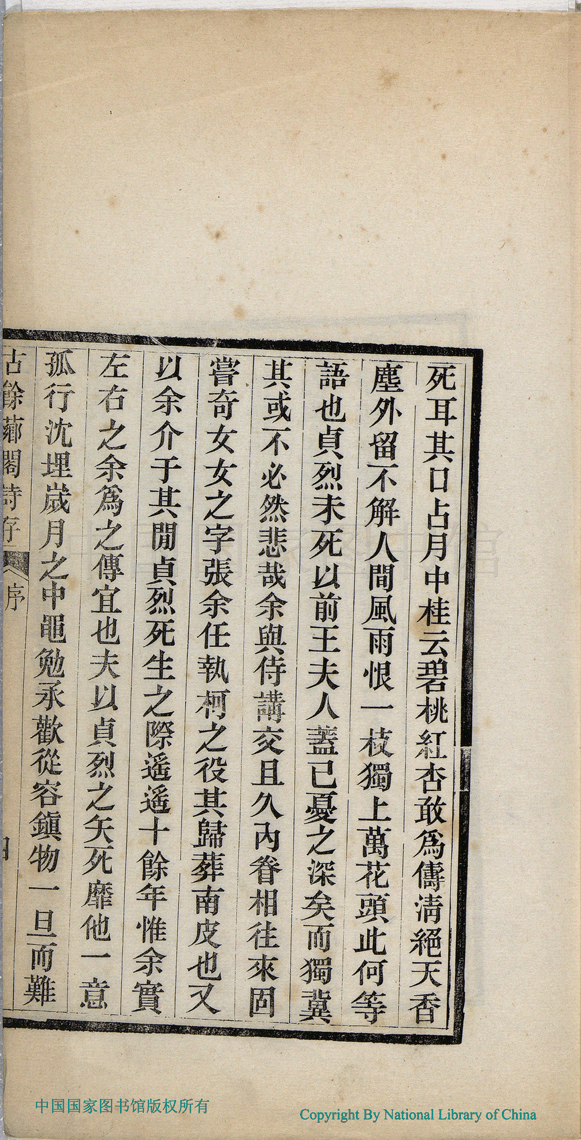 死耳其口占月中桂云碧桃紅杏敢爲儔淸絕天香
塵外留不解人間風雨恨一枝獨上萬花頭此何等
語也貞烈未死以前王夫人蓋已憂之深矣而獨冀
其或不必然悲哉余與侍講交且久內眷相往來固
嘗奇女女之字張余任執柯之役其歸葬南皮也又
以余介于其閒貞烈死生之際遙遙十餘年惟余實
左右之余爲之傳宜也夫以貞烈之矢死靡他一意
孤行沈埋歲月之中黽勉承歡從容鎭物一旦而難
古餘薌閣詩存 序
中国国家图书馆版权所有
Copyright By National Library of China